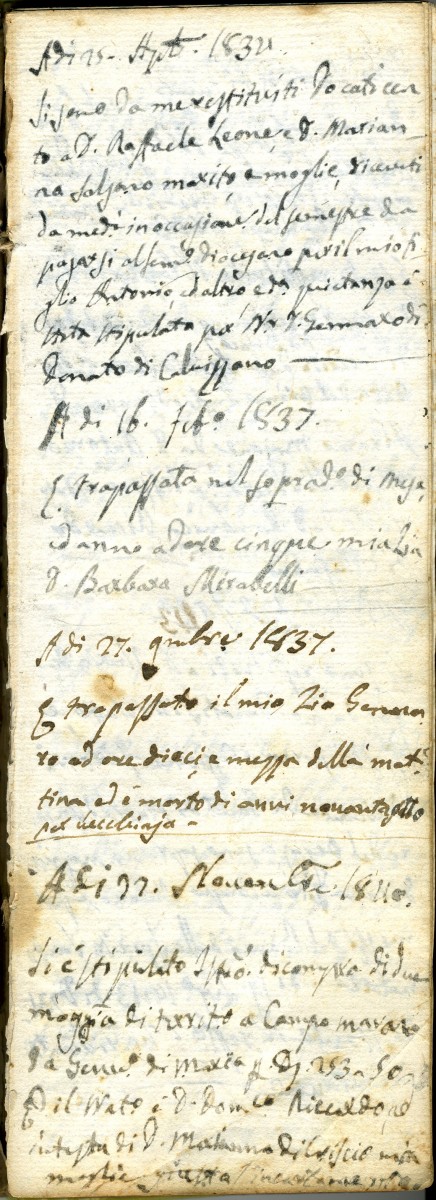 A di 25. Aple. 1834.
Si sono da me restituiti Docati cen
to a D. Raffaele Leone, e D. Marian
na Salsano marito e moglie, ricevuti
da med.i in occasione del semestre da
pagarsi al Sem.o diocesano per il mio fi
glio Antonio, ed altro e da quietanza è
stata stipulata per Nr. D. Gennaro di
Donato di Calvizzano
A di 16. Feb.o 1837.
È trapassata nel soprad.o di mese,
ed anno ad ore cinque mia Zia
D. Barbara Mirabelli
A di 27. 9mbre 1837.
È trapassato il mio Zio Genna
ro ad ore dieci e mezza della mat
tina ed è morto di anni novantotto
per vecchiaja
A di 27. Novembre 1840.
Si è stipulato Istro. di compra di due
moggia di territo a Campo marano
da Genn.o di Maria p. D. 253-50
il Nato. è D. Dom.co Riccardo, ed
intesta di D. Marianna
moglie, giusta